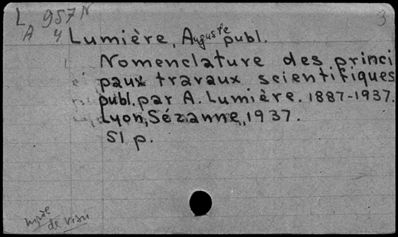 L 957 N 3
A 4 Lumière, Auguste publ.
Nomenclature des princi
paux travaux scientifiques
publ. par A. Lumière. 1887-1937.
Lyon, Sézanne, 1937.
51 p.
de